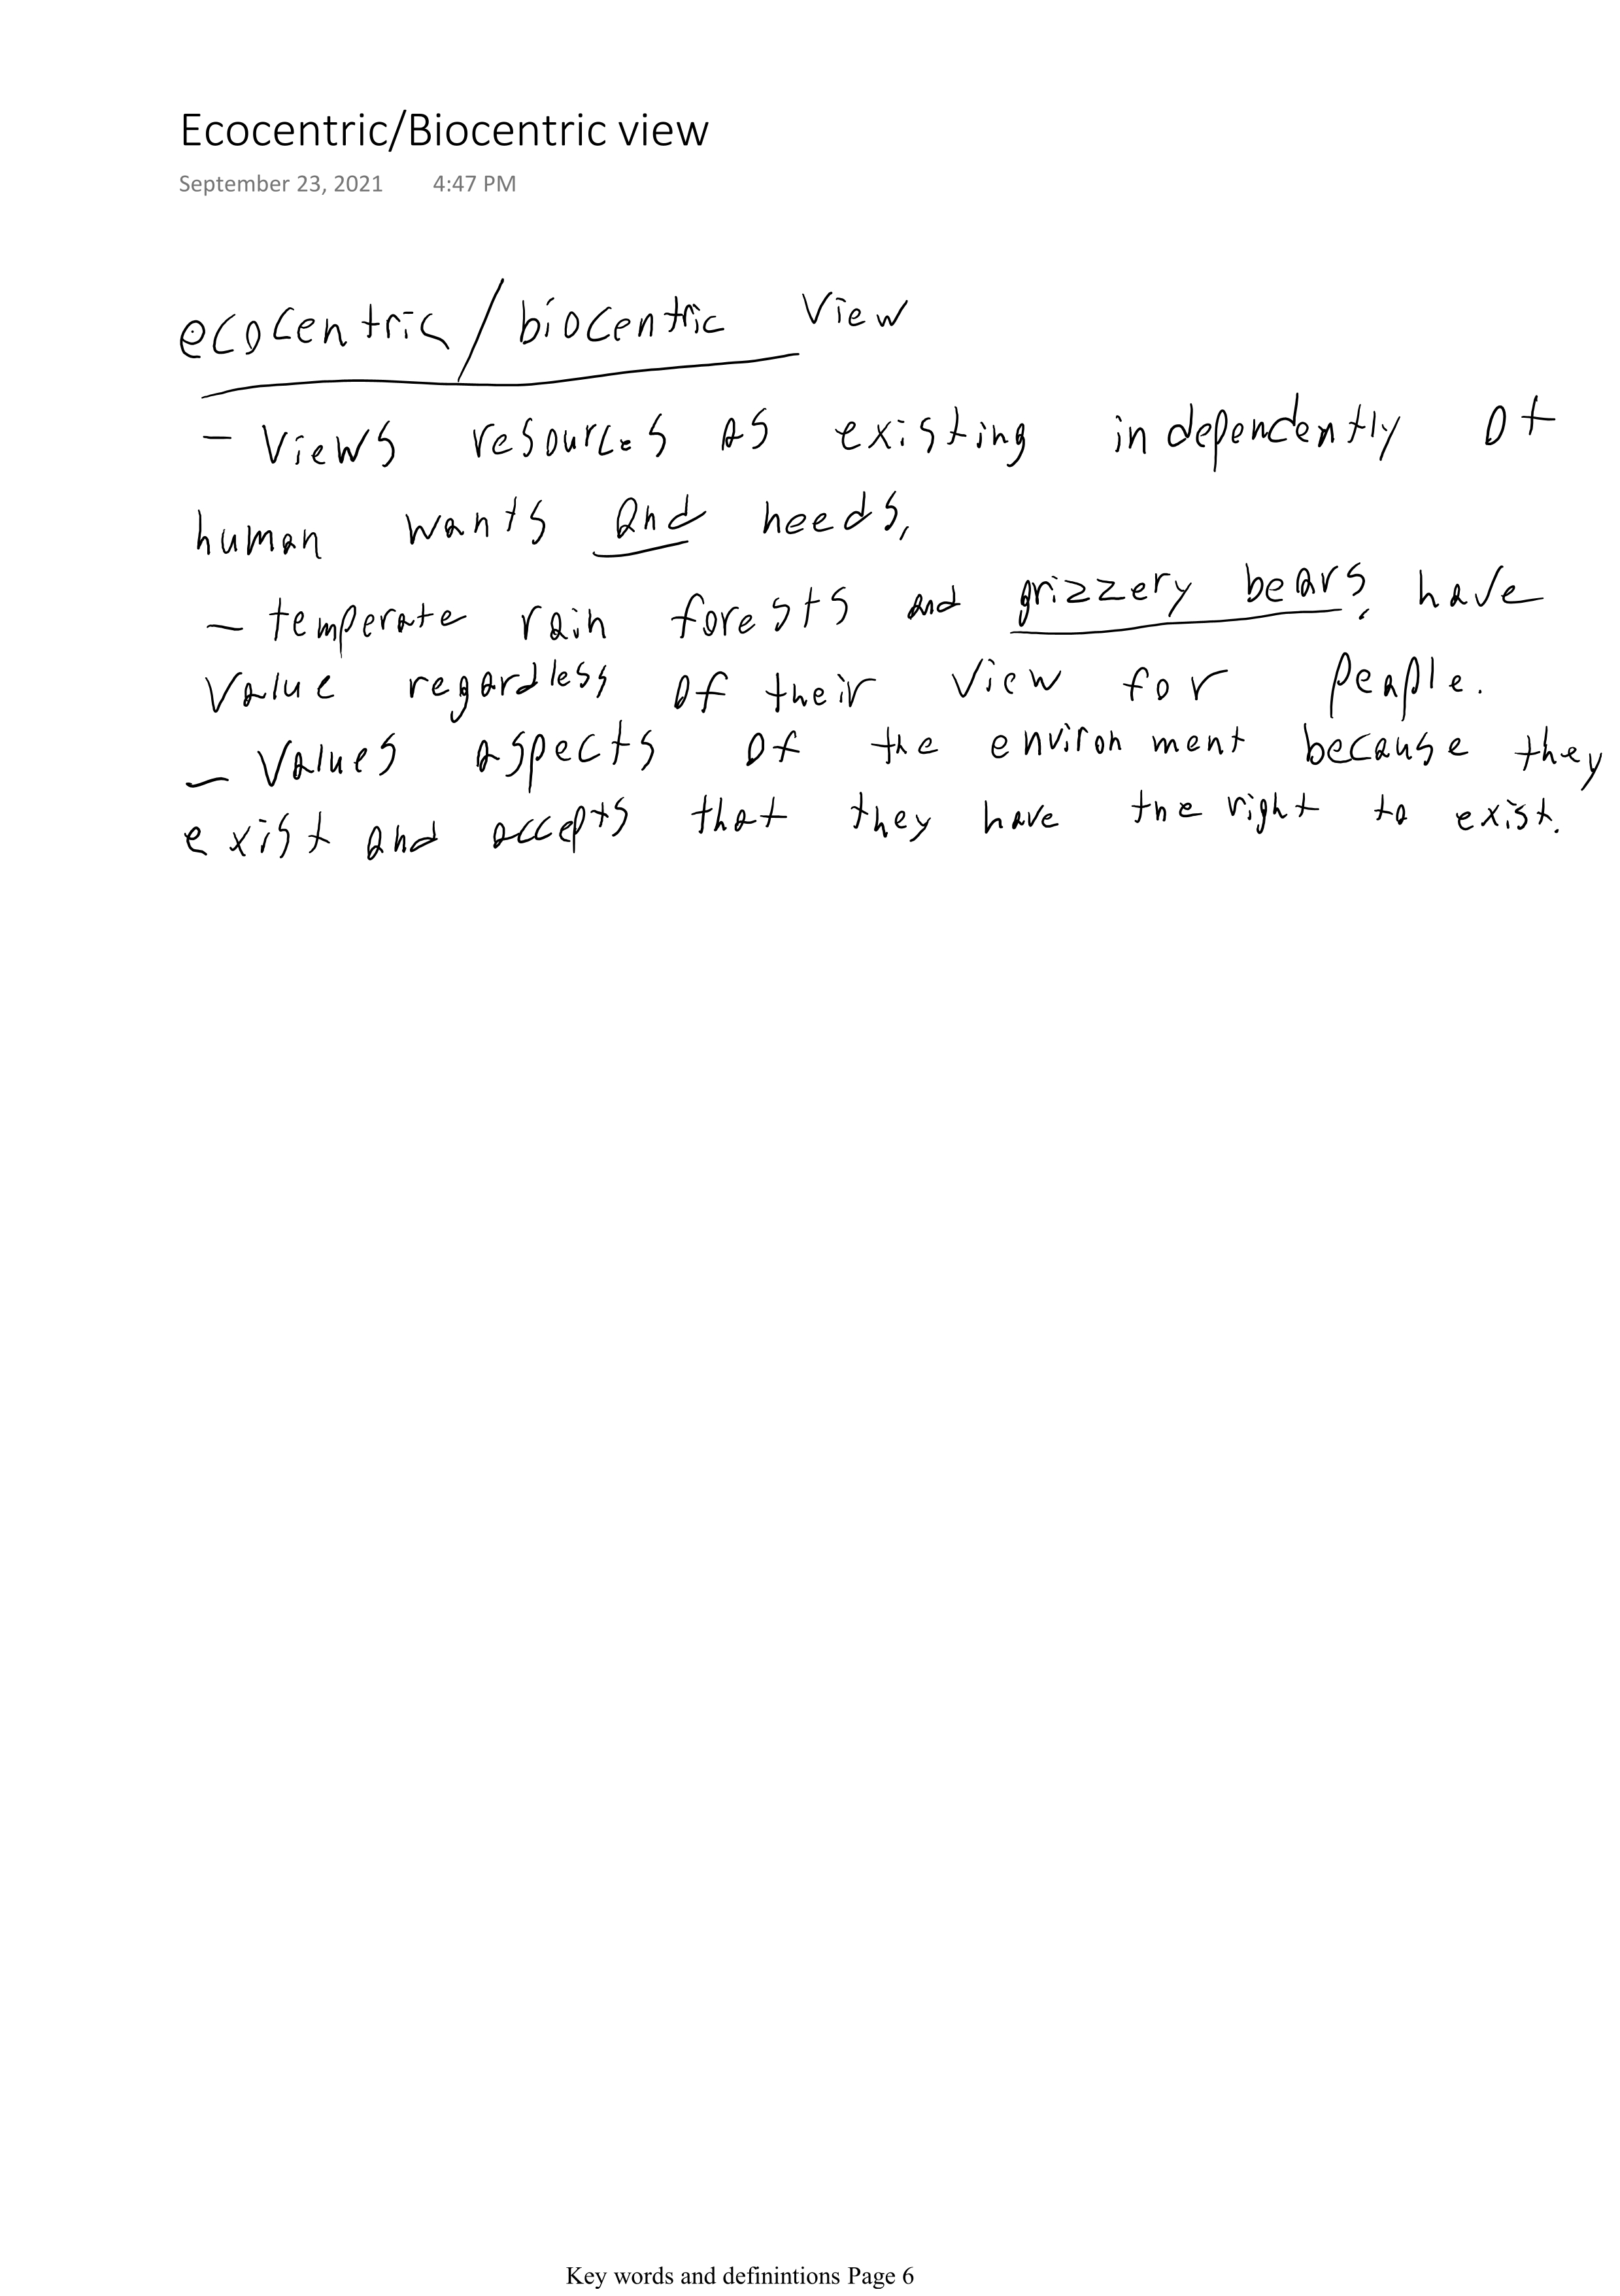 Ecocentric/Biocentric view
September 23, 2021 4:47 PM
ecocentric/biocentric view
- Views resources as existing independently of
human wants and needs,
- temperate rain forests and grizzery bears, have
value regardless of their view for people.
- Values aspects of the environment because they
exist and accepts that they have the right to exist.
Key words and definintions Page 6